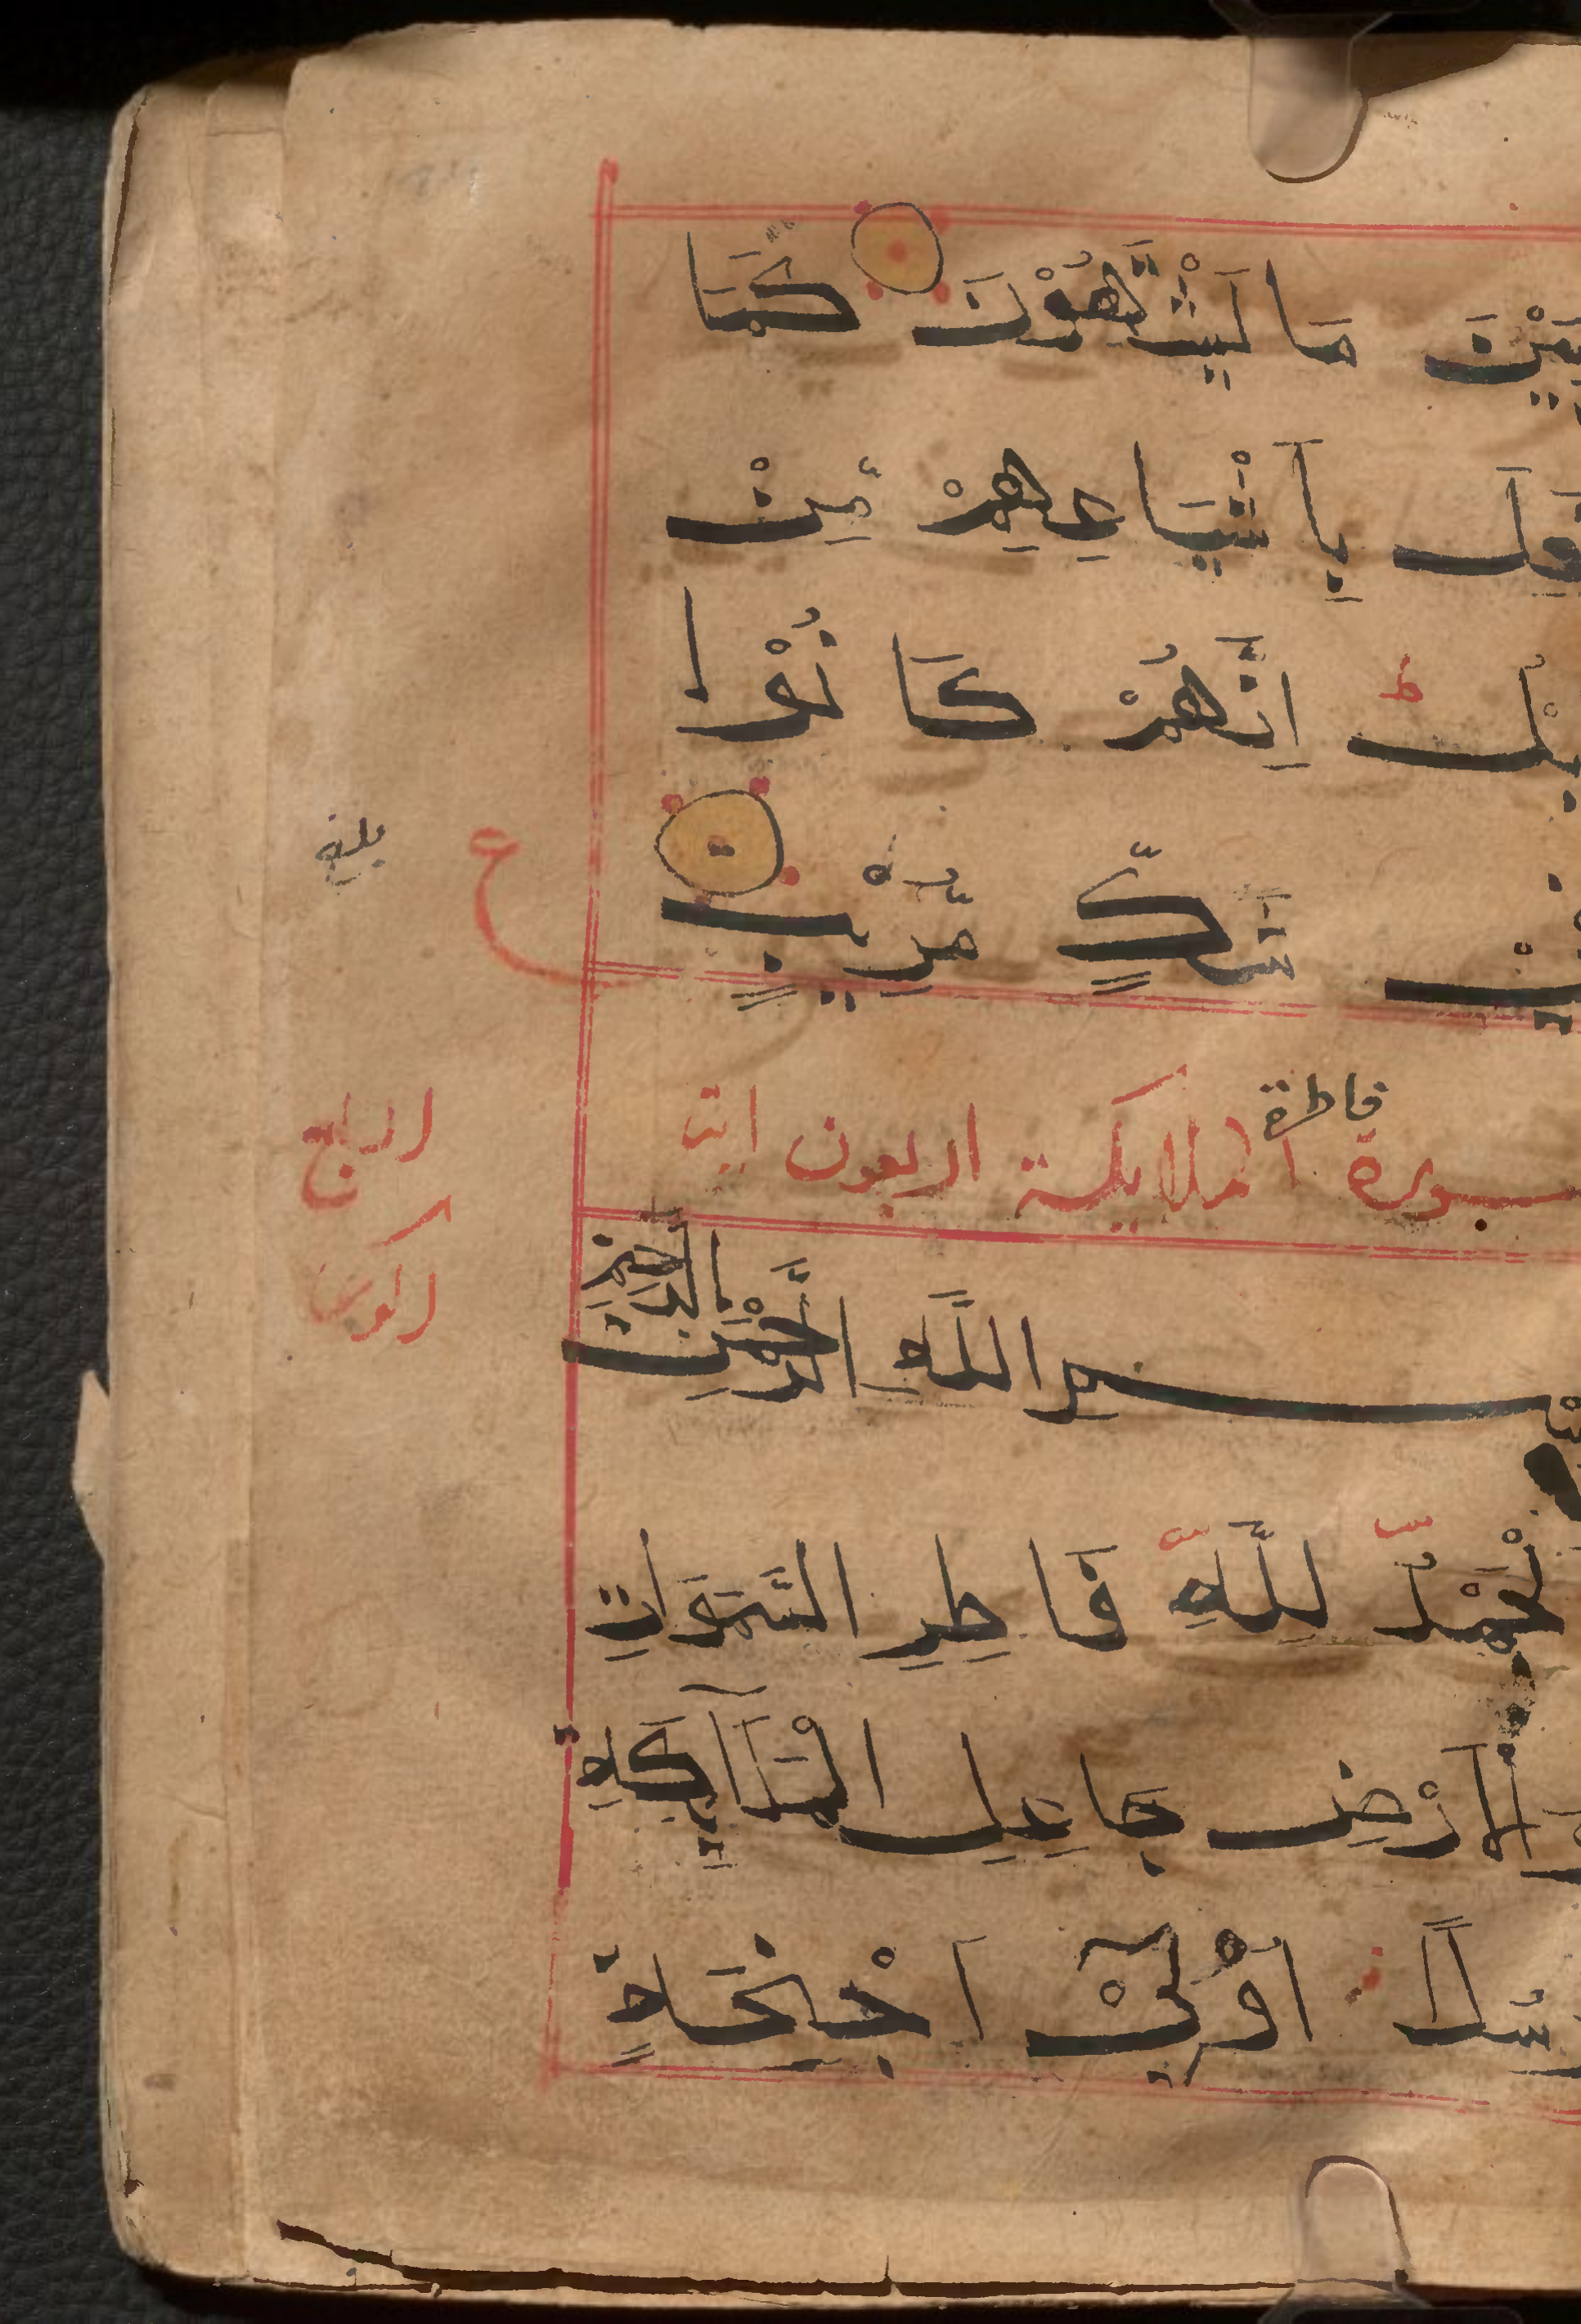 بَيْنَ مَا يَشْتَهُوْنَ كَمَا
بِاَشْيَاعِهِمْ مِّنْ
اِنَّهُمْ كَانُوْا
ط
شَكٍّ مُّرِيْبٍ
ع
بلغ
سورة الملايكة اربعون اية
فاطرة
الرابع
بِسْمِ اللّٰهِ الرَّحْمٰنِ الرَّحِيْمِ
اَلْحَمْدُ لِلّٰهِ فَاطِرِ السَّمٰوَاتِ
وَالْاَرْضِ جَاعِلِ الْمَلٰٓئِكَةِ
رُسُلًا اُولِيْٓ اَجْنِحَةٍ